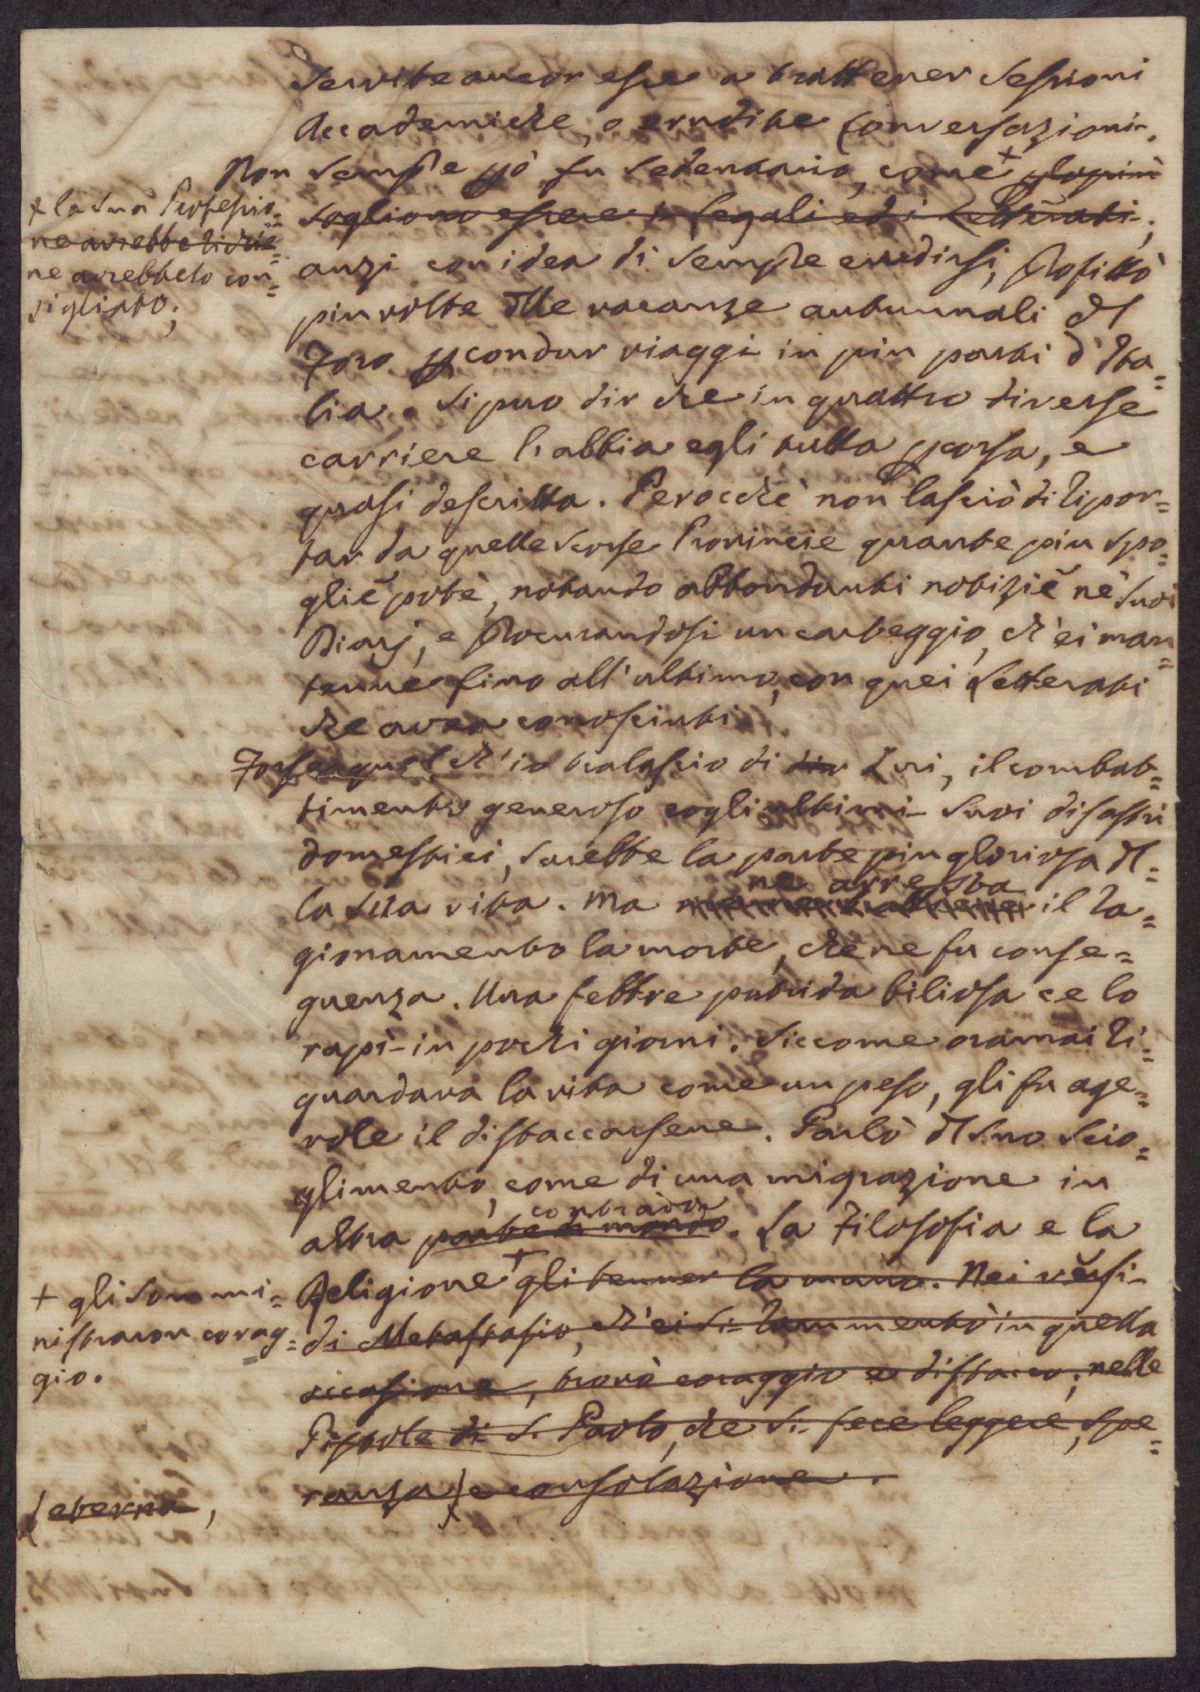 Servite ancor esse a trattener Sessioni
Accademiche, o erudite Conversazioni.
Non sempre pò fu sedentario, come +
sogliono essere i Legali ed i Letterati;
+ la sua Professio=
ne avrebbe richie=
ne avrebbelo con=
sigliato;
anzi con idea di sempre erudirsi, profittò
piu volte dlle vacanze autunnali dl
Foro p condur viaggi in piu parti d'Ita=
lia. Si puo dir che in quattro diverse
carriere l'abbia egli tutta pcorsa, e
quasi descritta. Perocchè non lasciò di ripor=
tar da quelle scorse Provincie quante piu spo=
glie potè, notando abbondanti notizie ne' suoi
Diarj, e procurandosi un carteggio, ch'ei man=
tenne fino all'ultimo, con quei Letterati
che avea conosciuti.
Forse quel ch'io tralascio di dir Lui, il combat=
timento generoso cogli ultimi suoi disastri
domestici, sarebbe la parte piu gloriosa dl=
la sua vita. Ma ne arresta il ra=
gionamento la morte, che ne fu conse=
guenza. Una febbre putrida biliosa ce lo
rapì in pochi giorni. Siccome oramai ri=
guardava la vita come un peso, gli fu age=
vole il distaccarsene. Parlò dl suo scio=
glimento, come di una migrazione in
altra parte di mondo contrada. La Filosofia e la
Religione + gli tenner la mano. Nei versi
+ gli sommi=
nistraron corag=
gio.
di Metastasio, ch'ei si rammentò in quella
occasione, trovò coraggio e distacco; nelle
Pistole di S. Paolo, che si fece leggere, spe=
ranza e consolazione.
eterna,